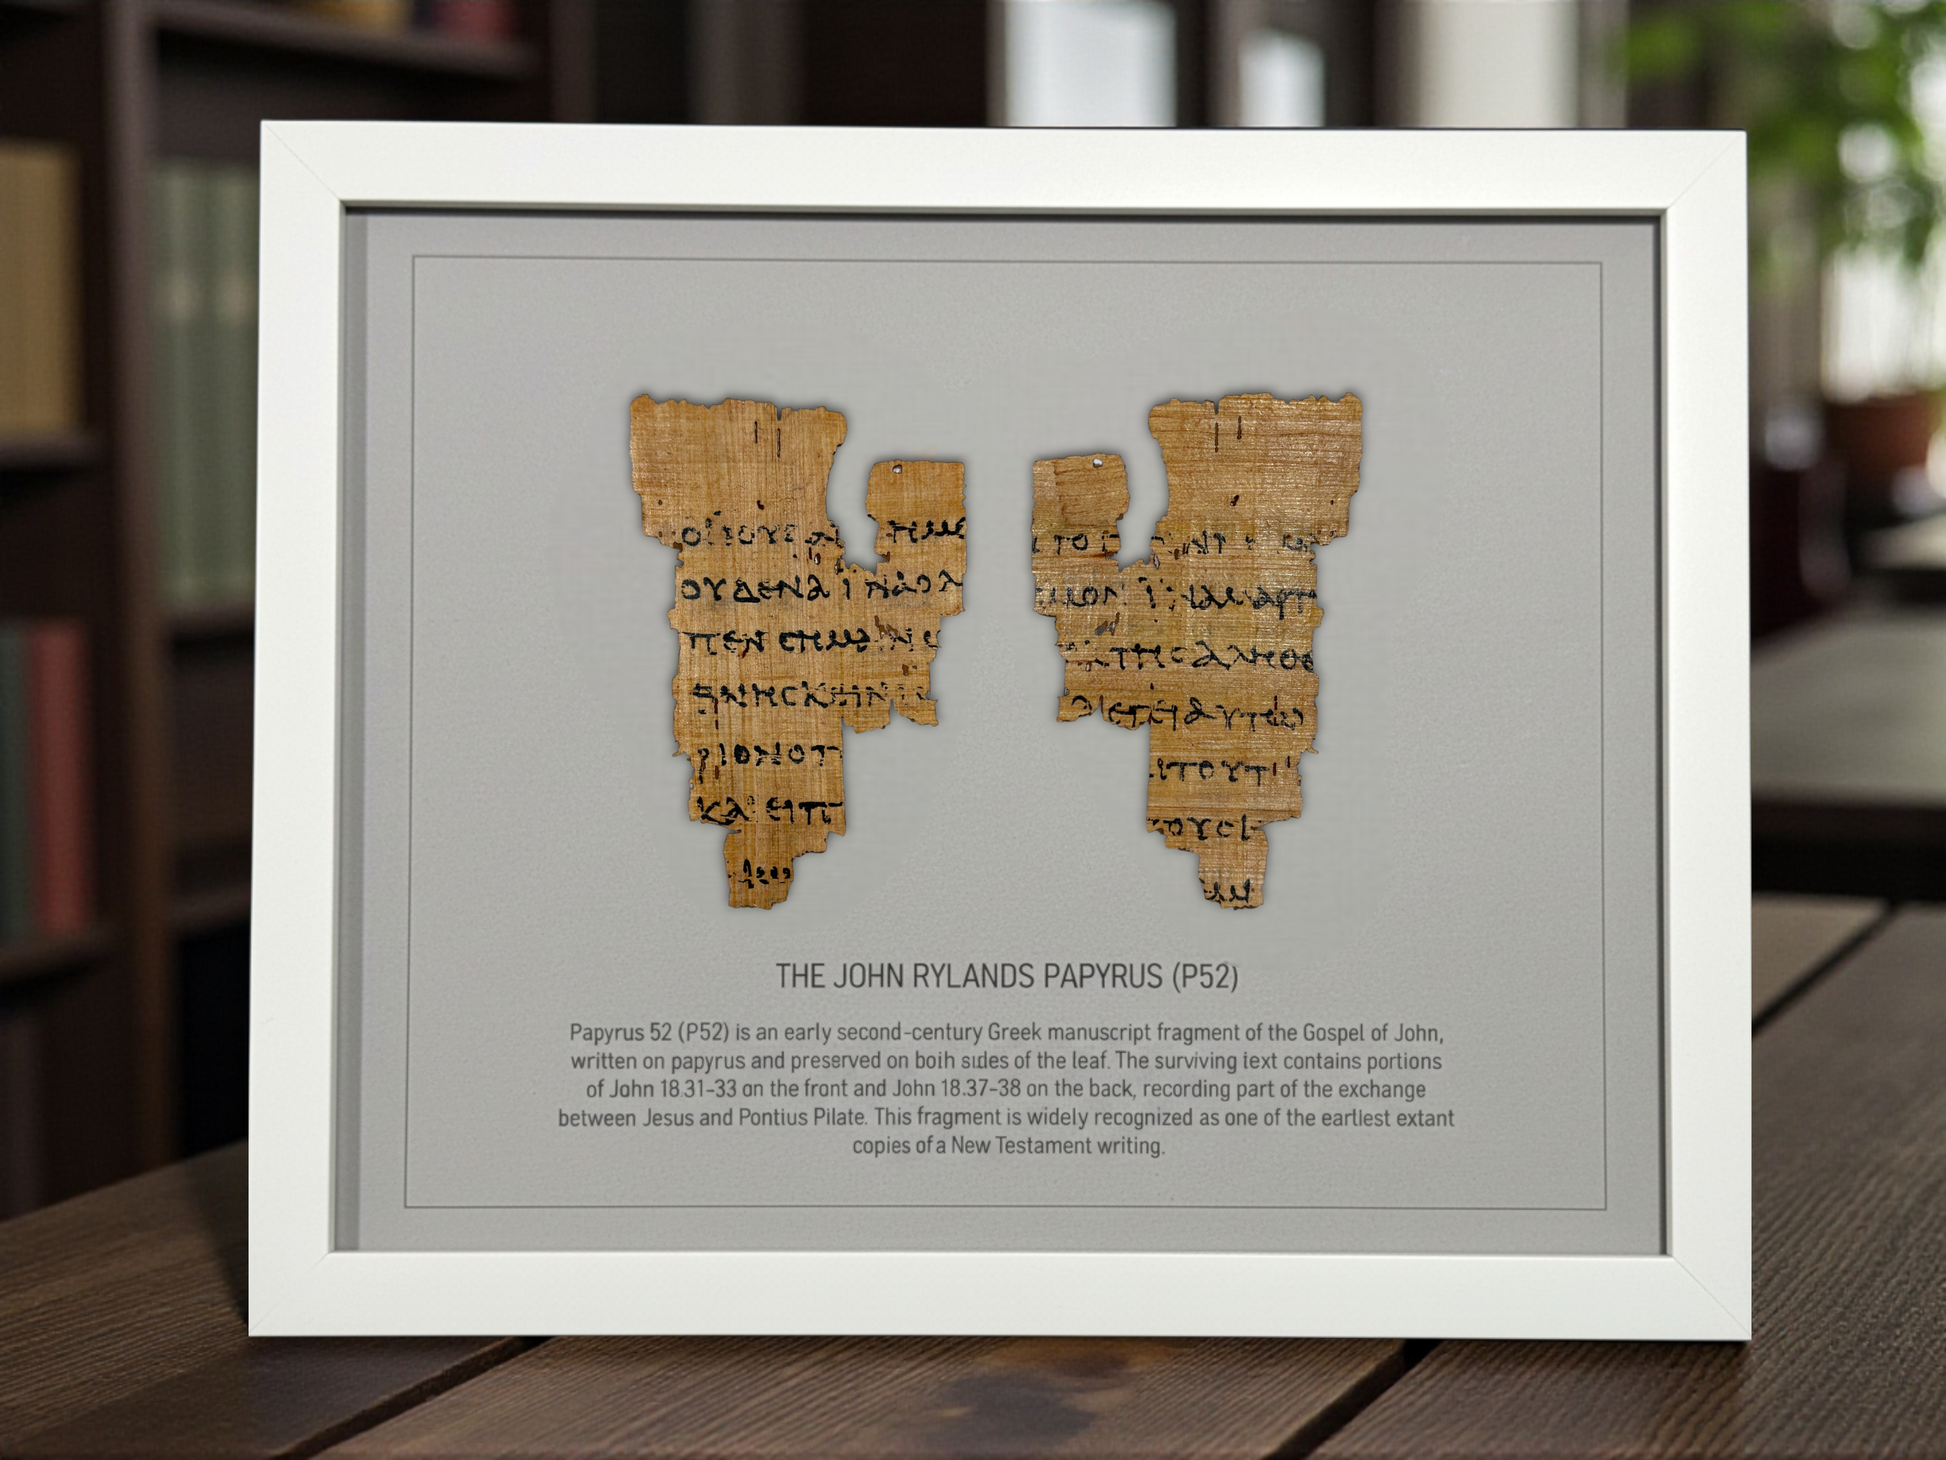 ΟΙ ΙΟΥΔΑΙ ΗΜΕ
ΟΥΔΕΝΑ ΙΝΑΟΛ
ΠΕΝ ΣΗΜΑΙΝΩ
ΘΝΗΣΚΕΙΝ
ΡΙΟΝ Ο Π
ΚΑΙ ΕΙΠ
ΤΟ
ΤΗΣ ΑΛΗΘΕ
ΛΕΓΕΙ ΑΥΤΩ
ΤΟΥΤ
ΤΟΥΣ Ι
THE JOHN RYLANDS PAPYRUS (P52)
Papyrus 52 (P52) is an early second-century Greek manuscript fragment of the Gospel of John,
written on papyrus and preserved on boih sides of the leaf. The surviving iext contains portions
of John 18.31-33 on the front and John 18.37-38 on the back, recording part of the exchange
between Jesus and Pontius Pilate. This fragment is widely recognized as one of the eartlest extant
copies of a New Testament writing.